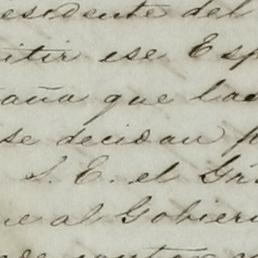 esidente del
itir ese Esp
taña que las
se decidan p
S. E. el Gra
ue al Gobiern